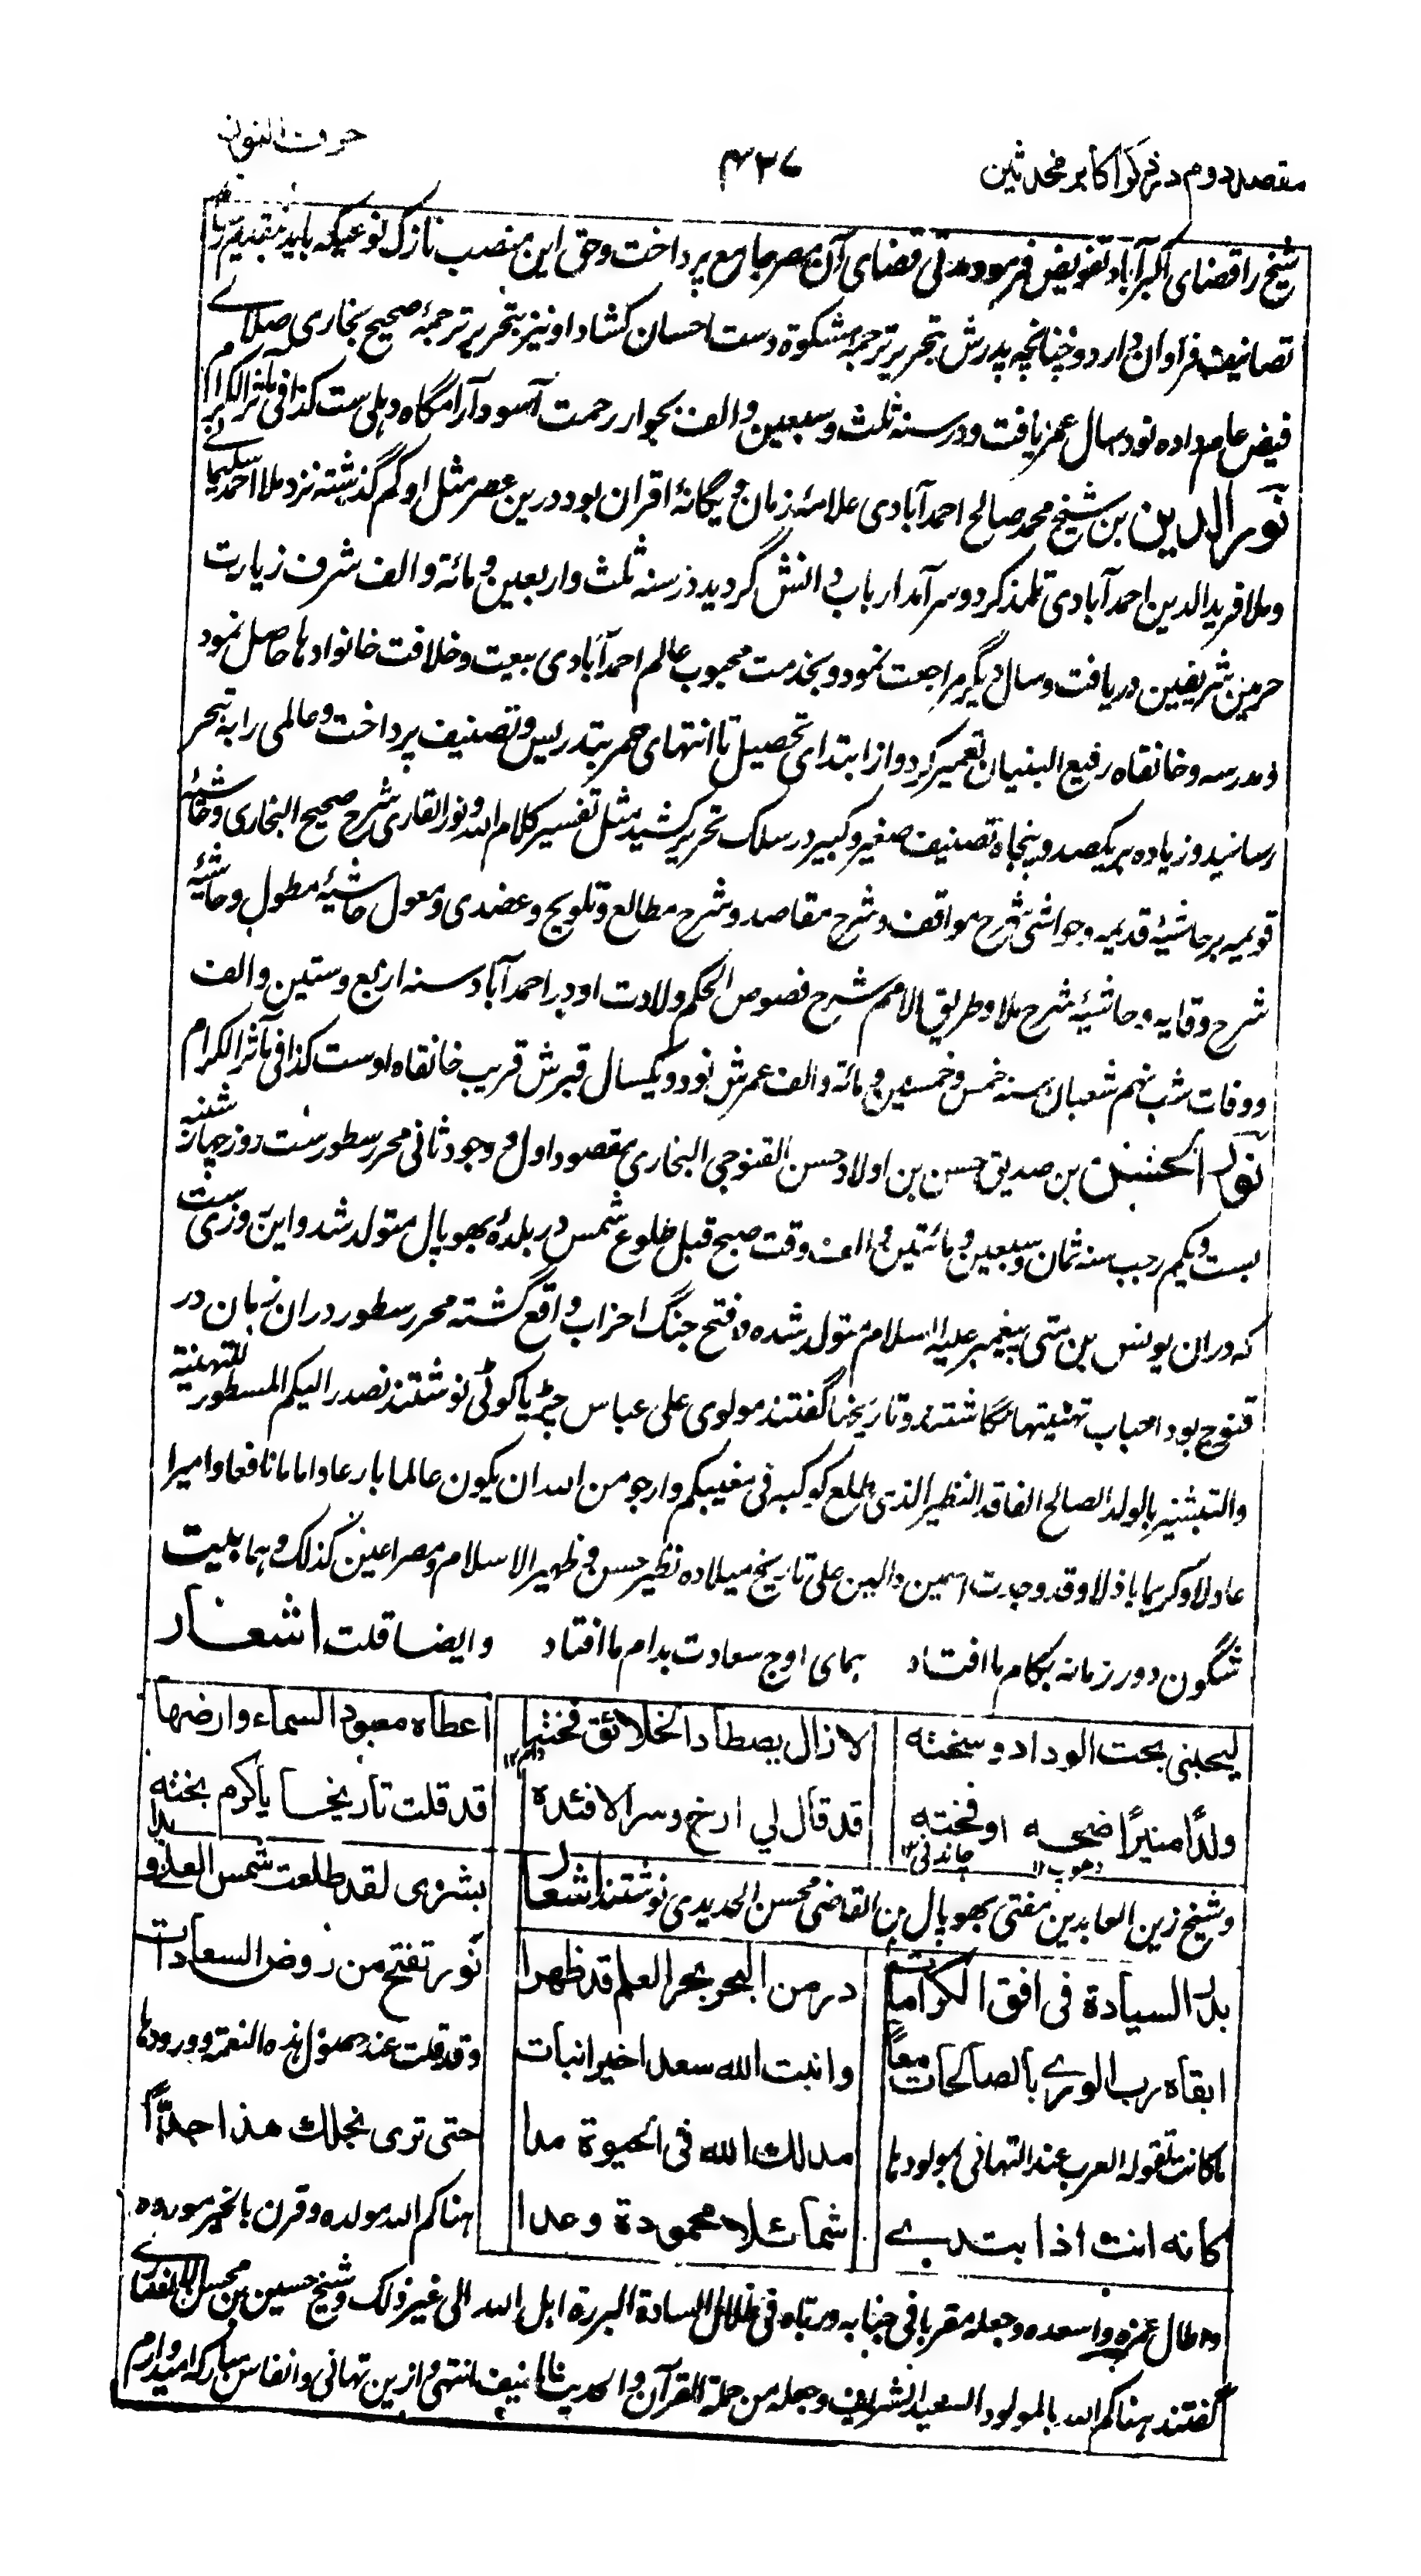 مقصد دوم در ذکر اکابر محدثین
۴۲۷
حرف النون
شیخ را قضای اکبرآباد تفویض فرمود مدتی قضای آن مصر جامع پرداخت و حق این منصب نازک نوعیکه باید بتقدیم رساند
تصانیف فراوان دارد و چنانچه پدرش بتحریر ترجمۂ مشکوة دست احسان کشاد او نیز بتحریر ترجمۂ صحیح بخاری صلای
فیض عام داده نود سال عمر یافت و در سنه ثلث و سبعین و الف بجوار رحمت آسود آرامگاه دهلی ست کذا فی مآثر الکرام
نور الدین بن شیخ محمد صالح احمدآبادی علامۂ زمان و یگانۂ اقران بود درین عصر مثل او کم گذشته نزد ملا احمد سلیمانی
و ملا فرید الدین احمدآبادی تلمذ کرد و سرآمد ارباب دانش گردید در سنه ثلث و اربعین و مائة و الف شرف زیارت
حرمین شریفین دریافت و سال دیگر مراجعت نمود و بخدمت محبوب عالم احمدآبادی بیعت و خلافت خانوادها حاصل نمود
و مدرسه و خانقاه رفیع البنیان تعمیر کرد و از ابتدای تحصیل تا انتهای عمر بتدریس و تصنیف پرداخت و عالمی را به تبحر
رسانید و زیاده بر یکصد و پنجاه تصنیف صغیر و کبیر در سلک تحریر کشید مثل تفسیر کلام الله و نور القاری شرح صحیح البخاری و حاشیۂ
قویمه بر حاشیۂ قدیمه و حواشی شرح مواقف و شرح مقاصد و شرح مطالع و تلویح و عضدی و معول حاشیۂ مطول و حاشیۂ
شرح وقایه و حاشیۂ شرح ملا و طریق الامم شرح فصوص الحکم ولادت او در احمدآباد سنه اربع و ستین و الف
و وفات شب نهم شعبان سنه خمس و خمسین و مائة و الف عمرش نود و یکسال قبرش قریب خانقاه اوست کذا فی مآثر الکرام
نور الحسن بن صدیق حسن بن اولاد حسن القنوجی البخاری مقصود اول و وجود ثانی محرر سطور ست روز چهارشنبه
بست و یکم رجب سنه ثمان و سبعین و مائتین و الف وقت صبح قبل طلوع شمس در بلدۂ بهوپال متولد شد و این روزی ست
که دران یونس بن متی پیغمبر علیه السلام متولد شده و فتح جنگ احزاب واقع گشته محرر سطور دران زمان در
قنوج بود احباب تهنیتها نگاشتند و تاریخها گفتند مولوی علی عباس چڑیاکوٹی نوشتند نصدر الیکم المسطور للتهنیة
والتبشیر بالولد الصالح الفاقد النظیر الذی طلع کوکبه فی مغیبکم وارجو من الله ان یکون عالما بارعا واماما نافعا وامیرا
عادلا وکریما باذلا وقد وجدت اسمین دالین علی تاریخ میلاده نظیر حسن و ظهیر الاسلام ومصراعین کذلک وهما بلیت
شگون دور زمانه بکام ما افتاد   همای اوج سعادت بدام ما افتاد   وایضا قلت اشعار
لیحبنی بحت الوداد وسخته   لا زال یصطاد الخلائق فخته   اعطاه معبود السماء وارضها
دام ۱۲
ولدًا منیرًا ضحیه او فخته   قد قال لی ارخ وسر الافئدة   قد قلت تاریخا یاکرم بخته
دهوپ ۱۲   چاندنی ۱۲
و شیخ زین العابدین مفتی بهوپال بن القاضی محسن الحدیدی نوشتند اشعار   بشری لقد طلعت شمس العلا وبدا
بدر السیادة فی افق الکرامات   در من البحر بحر العلم قد ظهرا   نور تفتح من روض السعادات
ابقاه رب الوری بالصالحات معاً   وانبت الله سعدا خیر انبات   وقد قلت عند حصول هذه النعمة وورودها
ما کانت تقوله العرب عند التهانی بمولودها   مد لک الله فی الحیوة مدا   حتی تری نجلک هذا جدّاً
کانه انت اذا بتدی   شمائلا محمودة وعدا   هناکم الله مولده وقرن بالخیر مورده
واطال عمره واسعده وجعله مقربا فی جنابه ورباه فی ظلال السادة البررة اهل الله الی غیر ذلک و شیخ حسین بن محسن الانصاری
گفتند هناکم الله بالمولود السعید الشریف وجعله من حملة القرآن والحدیث المنیف انتهی و ازین تهانی و انفاس مبارکه امیدوارم